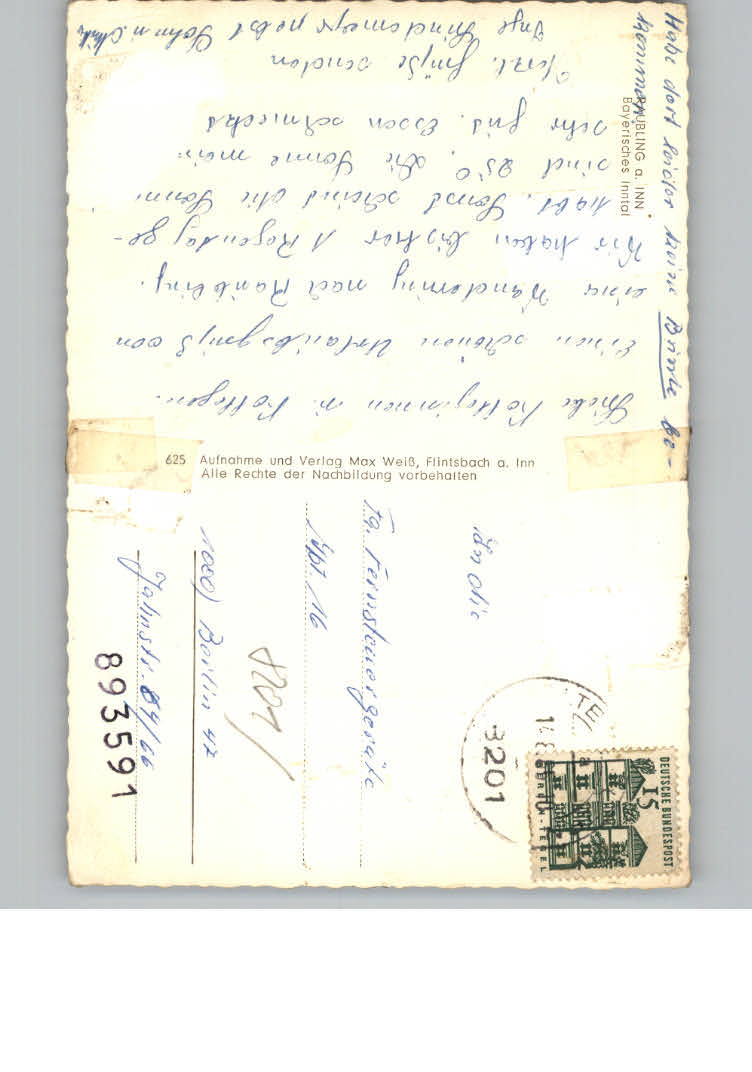 RAUBLING a. INN
Bayerisches Inntal
Liebe Kolleginnen u. Kollegen.
Einen schönen Urlaubsgruß von
einer Wanderung nach Raubling.
Wir haben bisher 1 Regentag ge-
habt. Sonst scheint die Sonne
sind 25°. Die Sonne
sehr gut. Essen schmeckt
Herzl. Grüße senden
Inge nebst Sohn u.
Habe dort leider keine Bande be-
kommen.
625 Aufnahme und Verlag Max Weiß, Flintsbach a. Inn
Alle Rechte der Nachbildung vorbehalten
DEUTSCHE BUNDESPOST
15
BERLIN-TEGEL
TE
14.8
a
3201
An die
Fa. Fernsteuergeräte
Abt. 16
1000) Berlin 47
Jahnstr. 64/66
8201
893591